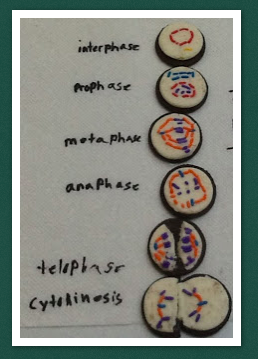 interphase
prophase
metaphase
anaphase
telophase
Cytokinosis